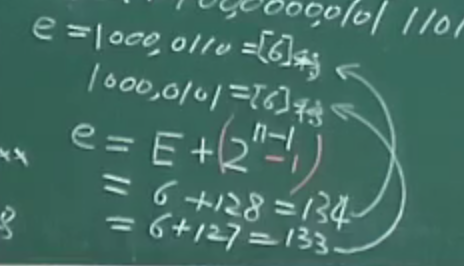 00,0000,0101 1101
e = 1000,0110 = [6]移
1000,0101 = [6]移
e = E + (2^{n-1} - 1)
= 6 + 128 = 134
= 6 + 127 = 133
xx
8